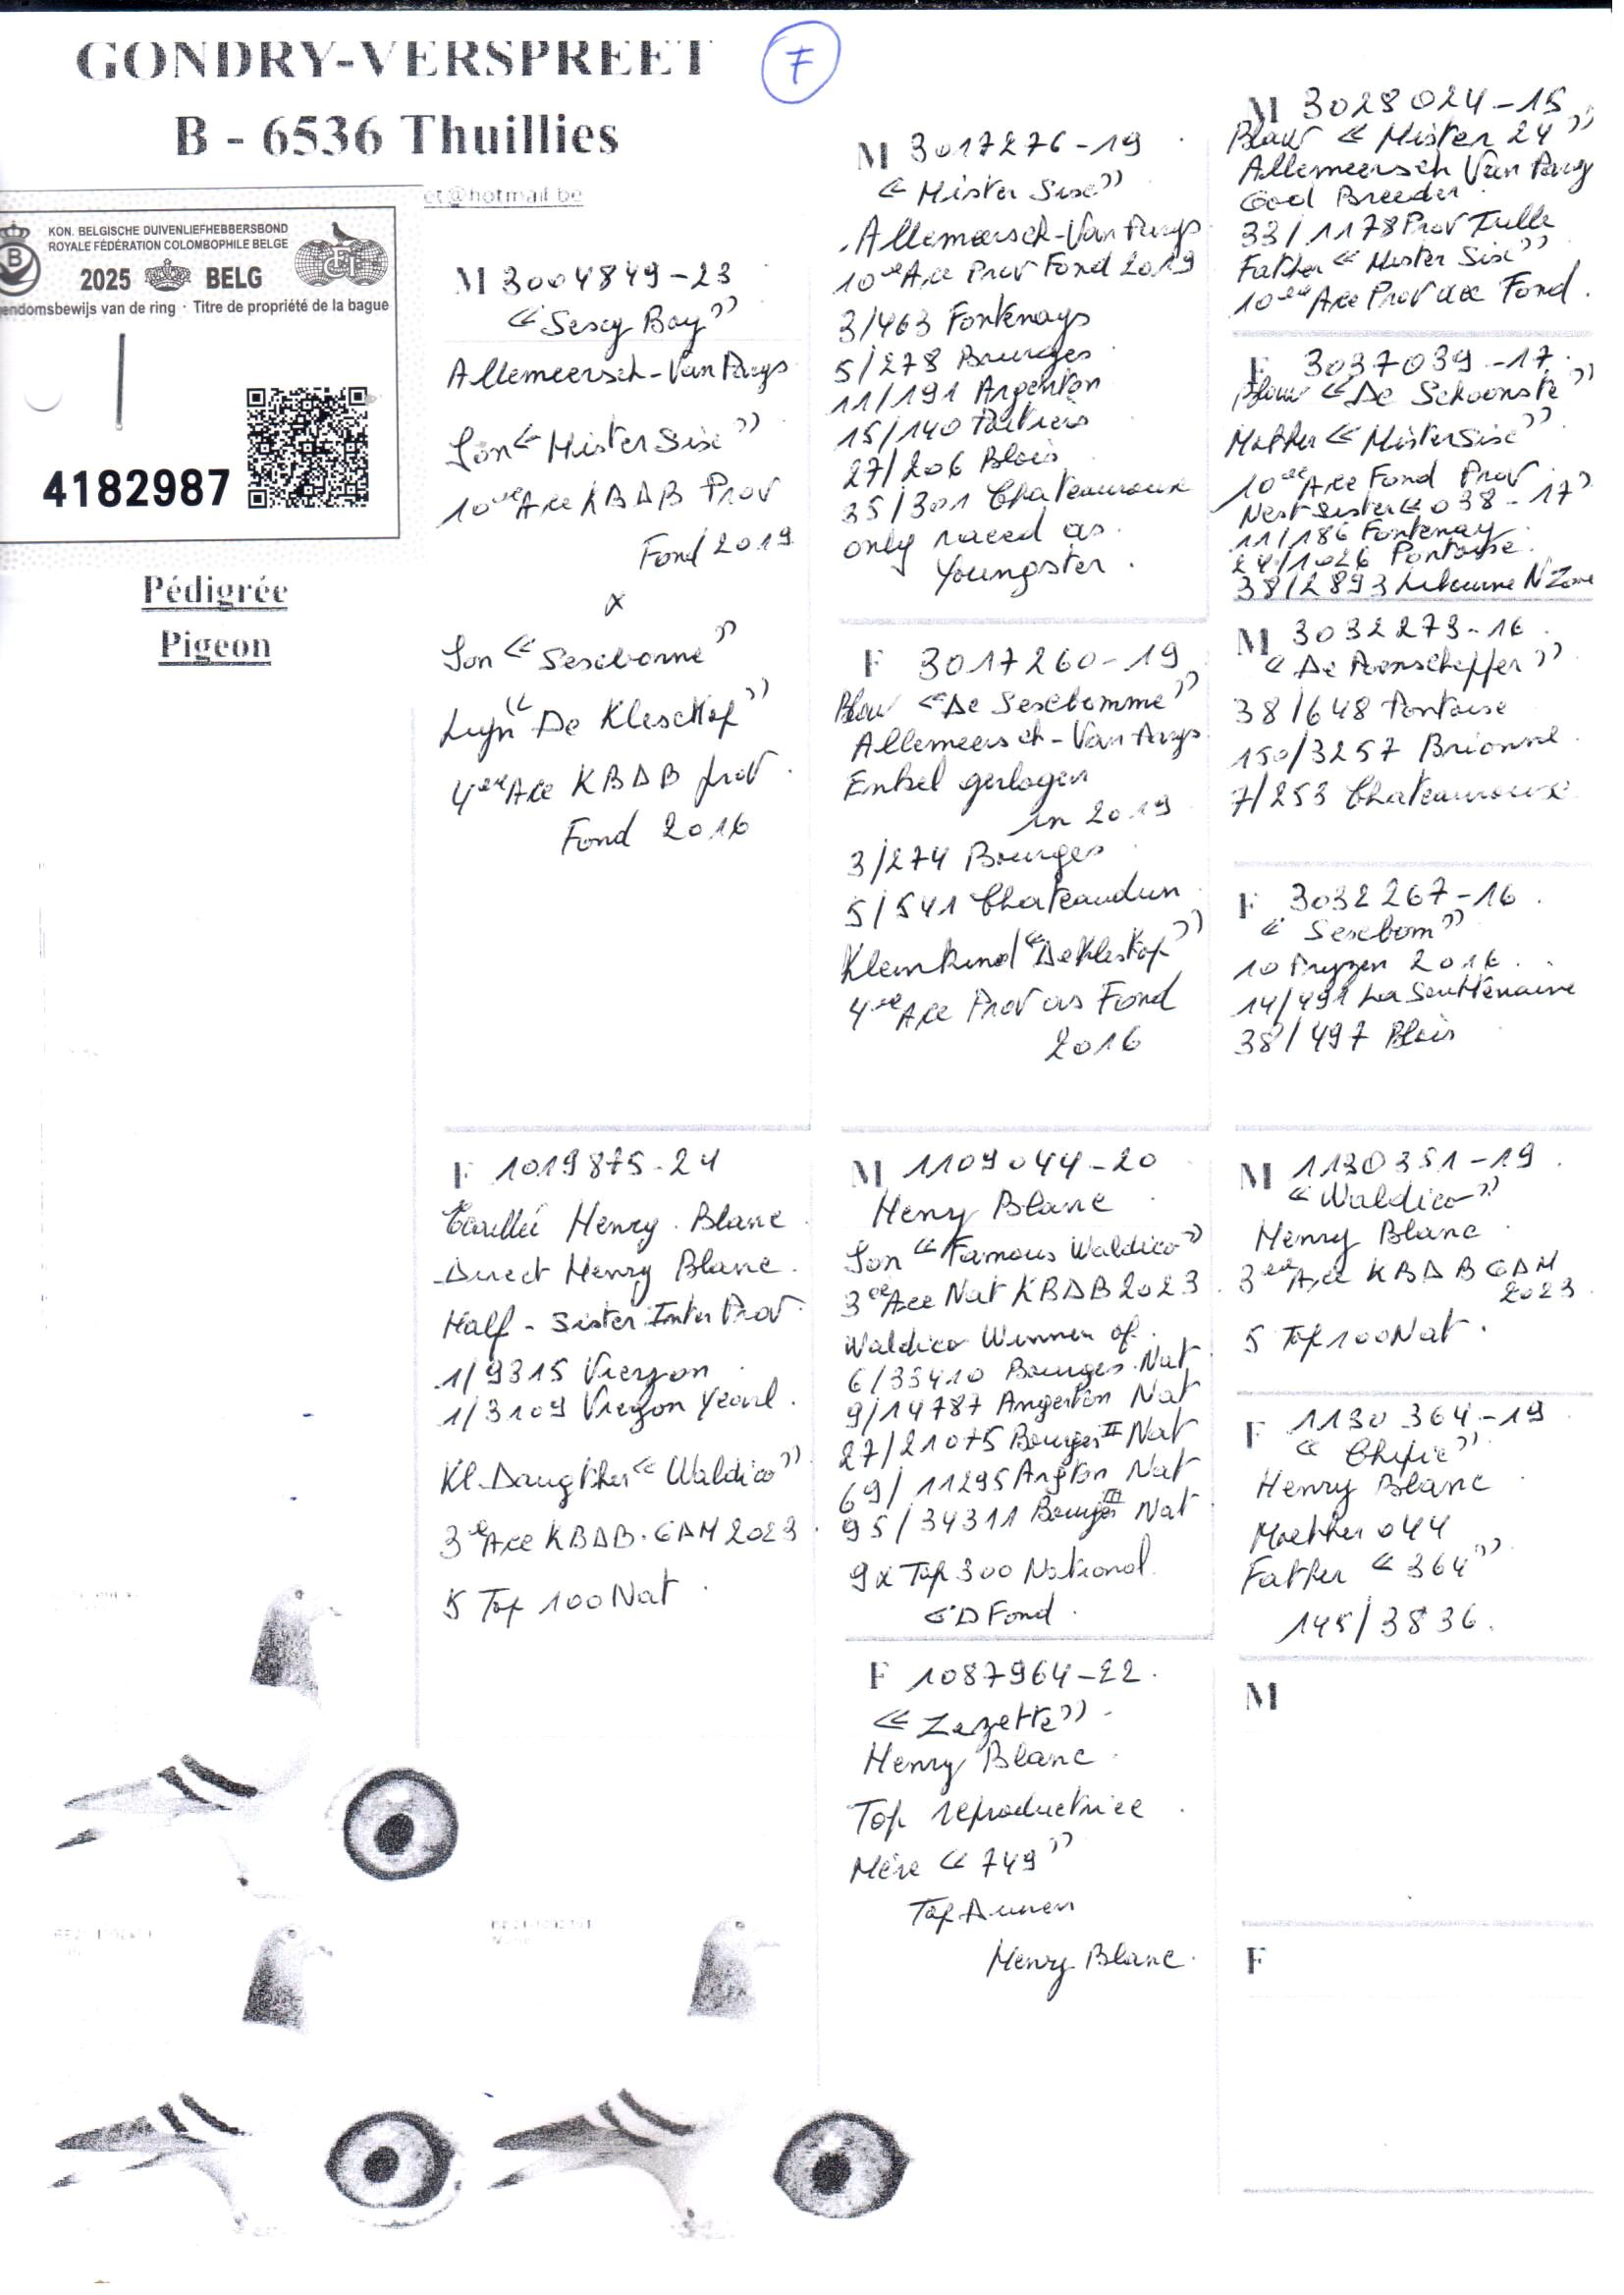 GONDRY-VERSPREET
B - 6536 Thuillies
F
et@hotmail.be
KON. BELGISCHE DUIVENLIEFHEBBERSBOND
ROYALE FÉDÉRATION COLOMBOPHILE BELGE
2025 BELG
endomsbewijs van de ring · Titre de propriété de la bague
4182987
Pédigrée
Pigeon
M 3004849-23
Allemeersch-Van Parys
Son « Mister Sisc »
Ace KBDB Prov
Fond 2019
x
Son «
4 Ace KBDB prov.
Fond 2016
F 1019875-24
Écaillé Henry Blanc
Direct Henry Blanc.
Half-Sister Inter Prov
1/9315 Vierzon
1/3109 Vierzon Yearl.
Kl. Daugther « Waldico »
3e Ace KBDB. GDM 2023
5 Top 100 Nat.
M 3017276-19
« Mister Sisc »
Allemeersch-Van Parys
Ace Prov Fond 2019
3/463 Fontenays
5/278 Bourges
11/191 Argenton
15/140 Poitiers
27/206 Blois
35/301 Chateauroux
only raced as
Youngster.
F 3017260-19
Blauw
Allemeersch-Van Parys
Enkel gevlogen
in 2019
3/274 Bourges
5/541 Chateaudun
Kleinkind
4 Ace Prov as Fond
2016
M 1109044-20
Henry Blanc
Son « Famous Waldico »
3 Ace Nat KBDB 2023
Waldico Winner of.
6/33410 Bourges Nat
9/14787 Argenton Nat
27/21075 Bourges II Nat
69/11295 Nat
95/34311 Bourges III Nat
9x Top 300 National
GD Fond.
F 1087964-22.
« Zezette »
Henry Blanc
Top reproductrice
Mère « 749 »
Top
Henry Blanc.
M 3028024-15
Blauw « Mister 24 »
Allemeersch Van Parys
Good Breeder
33/1178 Prov Tulle
Father « Mister Sisc »
Ace Prov Fond.
F 3037039-17.
Blauw « De Schoonste »
Mother « Mister Sisc »
Ace Fond Prov
Nest Sister « 038-17 »
11/186 Fontenay
24/1026 Pontoise.
38/2893 Libourne N Zone
M 3032273-16
38/648 Pontoise
150/3257 Brionne
7/253 Chateauroux
F 3032267-16.
10 Pryzen 2016.
14/491 La Souterraine
38/497 Blois
M 1130351-19
« Waldico »
Henry Blanc
3 Ace KBDB GDM
2023
5 Top 100 Nat.
F 1130364-19
« Chipie »
Henry Blanc
044
Father « 364 »
145/3836.
M
F